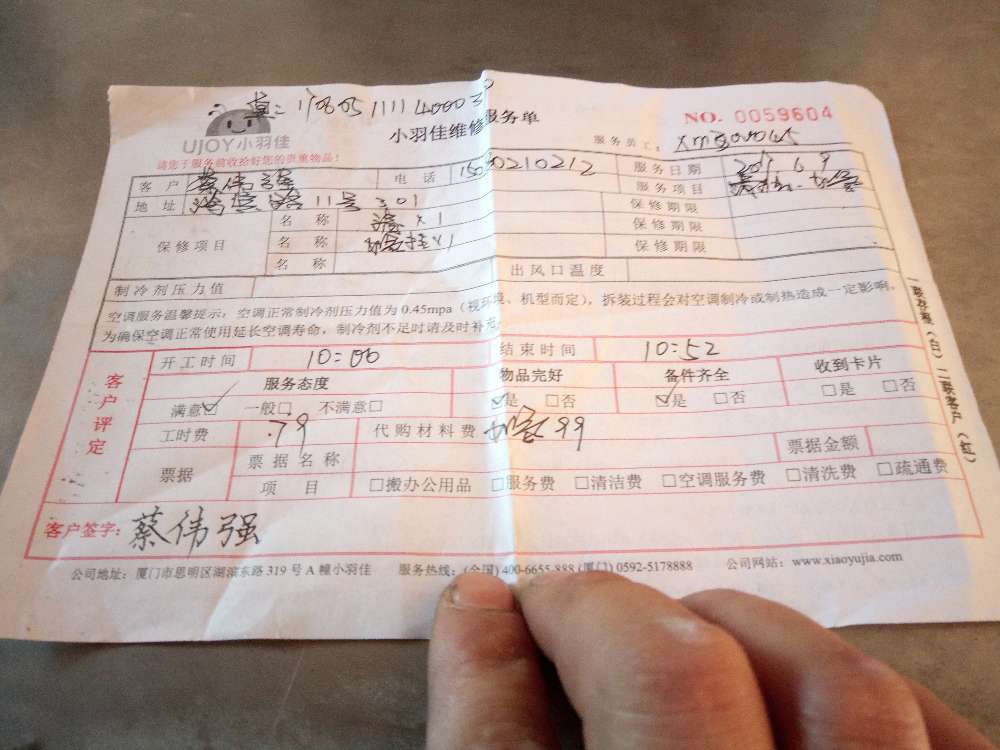 单: 1708051111400030
UJOY小羽佳
小羽佳维修服务单
NO. 0059604
服务员工:
请您于服务前收拾好您的贵重物品!
客户 蔡伟强 电话 15080210212 服务日期
服务项目
地址 11号 301 保修期限
保修项目 名称 x1 保修期限
名称 x1 保修期限
名称
制冷剂压力值 出风口温度
空调服务温馨提示: 空调正常制冷剂压力值为 0.45mpa (视环境、机型而定), 拆装过程会对空调制冷或制热造成一定影响,
为确保空调正常使用延长空调寿命, 制冷剂不足时请及时补充
一联存根(白) 二联客户(红)
客户评定
开工时间 10:06 结束时间 10:52
服务态度 物品完好 备件齐全 收到卡片
满意☑ 一般□ 不满意□ ☑是 □否 ☑是 □否 □是 □否
工时费 79 代购材料费 99
票据 票据名称 票据金额
项目 □搬办公用品 □服务费 □清洁费 □空调服务费 □清洗费 □疏通费
客户签字: 蔡伟强
公司地址: 厦门市思明区湖滨东路 319 号 A 幢小羽佳 服务热线: (全国) 400-6655-888 (厦门) 0592-5178888 公司网站: www.xiaoyujia.com